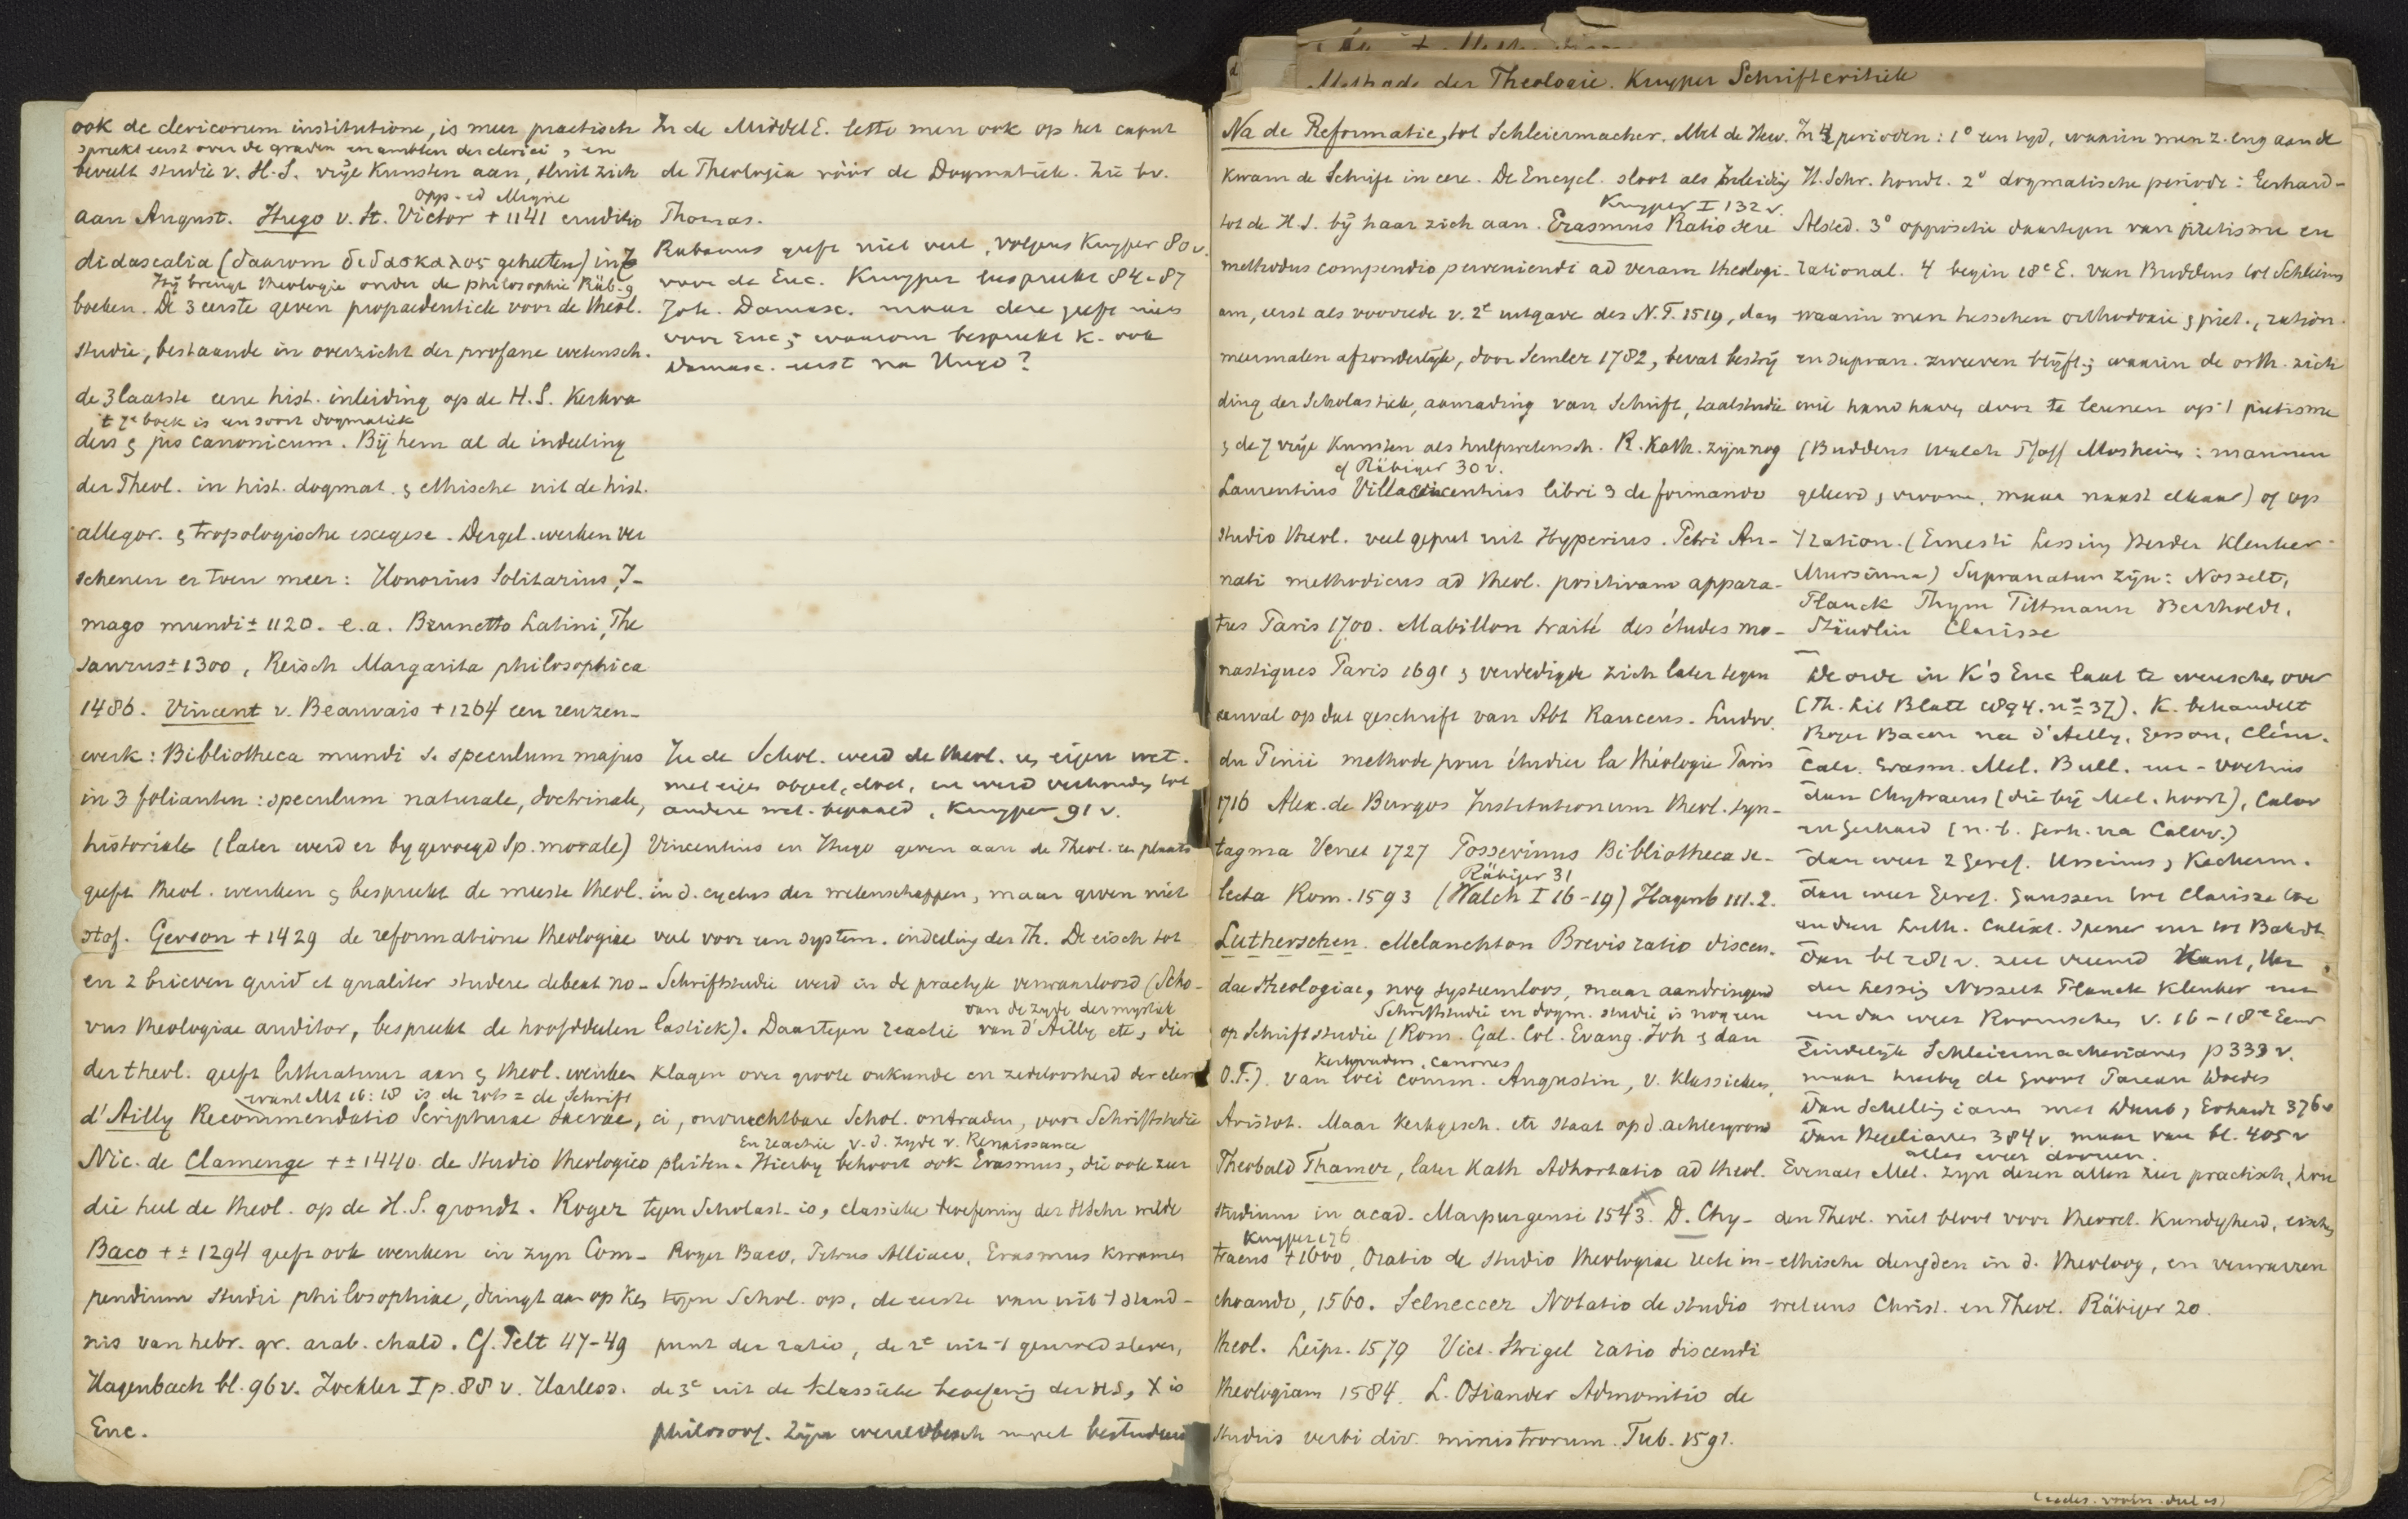 Methode der Theologie. Kuyper Schriftcritiek
ook de clericorum institutione, is meer practisch
spreekt eerst over de graden en ambten der clerici, en
beveelt studie v. H.S. vrije Kunsten aan, sluit zich
opp. ed Migne
aan August. Hugo v. St. Victor + 1141 eruditio
didascalia (daarom διδασκαλος geheeten) in 7
Hij brengt theologie onder de philosophie Räb. 9
boeken. De 3 eerste geven propaedeutiek voor de theol.
studie, bestaande in overzicht der profane wetensch.
de 3 laatste eene hist. inleiding op de H.S. Kerkva
't 7e boek is een soort dogmatiek
ders & jus canonicum. Bij hem al de indeeling
der Theol. in hist. dogmat. & ethische uit de hist.
allegor. & tropologische exegese. Dergel. werken ver
schenen er toen meer: Honorius Solitarius, I-
mago mundi ± 1120. e.a. Brunetto Latini, The
saurus ± 1300, Reisch Margarita philosophica
1486. Vincent v. Beauvais + 1264 een reuzen-
werk: Bibliotheca mundi s. speculum majus
in 3 folianten: speculum naturale, doctrinale,
historiale (later werd er bygevoegd Sp. morale)
geeft theol. werken & bespreekt de meeste theol.
stof. Gerson + 1429 de reformatione theologiae
en 2 brieven quid et qualiter studere debeat no-
vus theologiae auditor, bespreekt de hoofddeelen
der theol. geeft litteratuur aan & theol. werken
want Mt 16:18 is de rots = de Schrift
d'Ailly Recommendatio Scripturae sacrae,
Nic. de Clamenge + ± 1440 de studio theologico
die heel de theol. op de H.S. grondt. Roger
Baco + ± 1294 geeft ook wenken in zyn Com-
pendium studii philosophiae, dringt aan op ken
nis van hebr. gr. arab. chald. Cf. Pelt 47-49
Hagenbach bl. 96v. Zockler I p. 88 v. Harless.
Enc.
In de Middel E. lette men ook op het caput
de Theologia vóór de Dogmatiek. Zie bv.
Thomas.
Rabanus geeft niet veel, volgens Kuyper 80v.
voor de Enc. Kuyper bespreekt 84-87
Joh. Damasc. maar deze geeft niets
voor Enc; waarom bespreekt K. ook
Damasc. eerst na Hugo?
In de Schol. werd de theol. een eigen wet.
met eigen object, doel, en werd verhouding tot
andere wet. bepaald, Kuyper 91 v.
Vincentius en Hugo geven aan de Theol. een plaats
in d. cyclus der wetenschappen, maar geven niet
veel voor een system. indeeling der Th. De eisch tot
Schriftstudie werd in de practyk verwaarloosd (Scho-
van de zyde der mystiek
lastiek). Daartegen reactie van d'Ailly etc, die
klagen over groote onkunde en zedeloosheid der cleri
ci, onvruchtbare Schol. ontraden, voor Schriftstudie
En reactie v.d. zyde v. Renaissance
pleiten. Hierby behoort ook Erasmus, die ook zeer
tegen Scholast. is, classieke beoefening der H Schr wilde
Roger Baco, Petrus Alliaco, Erasmus kwamen
tegen Schol. op, de eerste van uit 't stand-
punt der ratio, de 2e uit 't gemoedsleven,
de 3e uit de klassieke beoefening der HS, X is
philosoof. Zijn wereldboek moet bestudeerd
Na de Reformatie, tot Schleiermacher. Met de Hew.
kwam de Schrift in eere. De Encycl. sloot als Inleiding
Kuyper I 132 v.
tot de H.S. bij haar zich aan. Erasmus Ratio seu
methodus compendio perveniendi ad veram theologi-
am, eerst als voorrede v. 2e uitgave des N.T. 1519, dan
meermalen afzonderlijk, door Semler 1782, bevat bestrij
ding der Scholastiek, aanrading van Schrift, taalstudie
& de 7 vrije Kunsten als hulpwetensch. R. Kath. zijn nog
cf Räbiger 30 v.
Laurentius Villavicentius libri 3 de formando
studio theol. veel geput uit Hyperius. Petri An-
nati methodicus ad theol. positivam appara-
tus Paris 1700. Mabillon traité des études mo-
nastiques Paris 1691 & verdedigde zich later tegen
aanval op dat geschrift van Abt Ranceus. Ludov.
du Pinii methode pour étudier la théologie Paris
1716 Alex. de Burgos Institutionum theol. syn-
tagma Venet 1727 Possevinus Bibliotheca se-
Räbiger 31
lecta Rom. 1593 (Walch I 16-19) Hagenb 111.2.
Lutherschen. Melanchton Brevis ratio discen-
dae theologiae, nog systeemloos, maar aandringend
Schriftstudie en dogm. studie is nog een
op Schriftstudie (Rom. Gal. Col. Evang. Joh & dan
Kerkvaders, canones
O.T.). van loci comm. Augustin, v. Klassieken,
Aristot. Maar Kerkgesch. etc staat op d. achtergrond
Theobald Thamer, later Kath Adhortatio ad theol.
studium in acad. Marpurgensi 1543. D. Chy-
Kuyper 176
traeus + 1600, Oratio de studio theologiae recte in-
choando, 1560. Selneccer Notatio de studio
theol. Leipz. 1579 Vict. Strigel ratio discendi
theologiam 1584. L. Osiander Admonitio de
studiis verbi div. ministrorum. Tub. 1591.
In 4 perioden: 1° een tyd, waarin men z. eng aan de
H. Schr. houdt. 2° dogmatische periode: Gerhard-
Alsted. 3° oppositie daartegen van piëtisme en
rational. 4 begin 18e E. van Buddeus tot Schleierm
waarin men tusschen orthodoxie & piet., ration.
en supran. zweven blijft; waarin de orth. zich
wil handhaven door te leunen op 't piëtisme
(Buddeus Walch Pfaff Mosheim: mannen
geleerd, vroom, maar naast elkaar) of op
't ration. (Ernesti Lessing Herder Kleuker
Mursinna) Supranatur. zijn: Nosselt,
Planck Thym Tittmann Bertholdt,
Stäudlin Clarisse
De orde in K's Enc laat te wenschen over
(Th. Lit Blatt 1894. no 37). K. behandelt
Roger Bacon na d'Ailly, Gerson, Clém.
Calv. Erasm. Mel. Bull. en - Voetius
dan Chytraeus (die bij Mel. hoort), Calov
en Gerhard (n.b. Gerh. na Calov.)
dan weer 2 Geref. Ursinus, Keckerm.
dan weer Geref. Gaussen tot Clarisse toe
en dan Luth. Calixt. Spener enz tot Bahrdt
dan bl 281 v. zeer vreemd Kant, Her
der Lessing Nosselt Planck Kleuker enz
en dan weer Roomschen v. 16-18e Eeuw
Eindelijk Schleiermacherianen p 333 v.
maar hierby de Groot Pareau Doedes
Dan Schellingianen met Daub, Erhardt 376v
Dan Hegelianen 384 v. maar van bl. 405 v
alles weer dooreen.
Evenals Mel. zyn dezen allen zeer practisch, hou
den Theol. niet bloot voor theoret. kundigheid, eischen
ethische deugden in d. theoloog, en verwarren
wel eens Christ. en Theol. Räbiger 20.